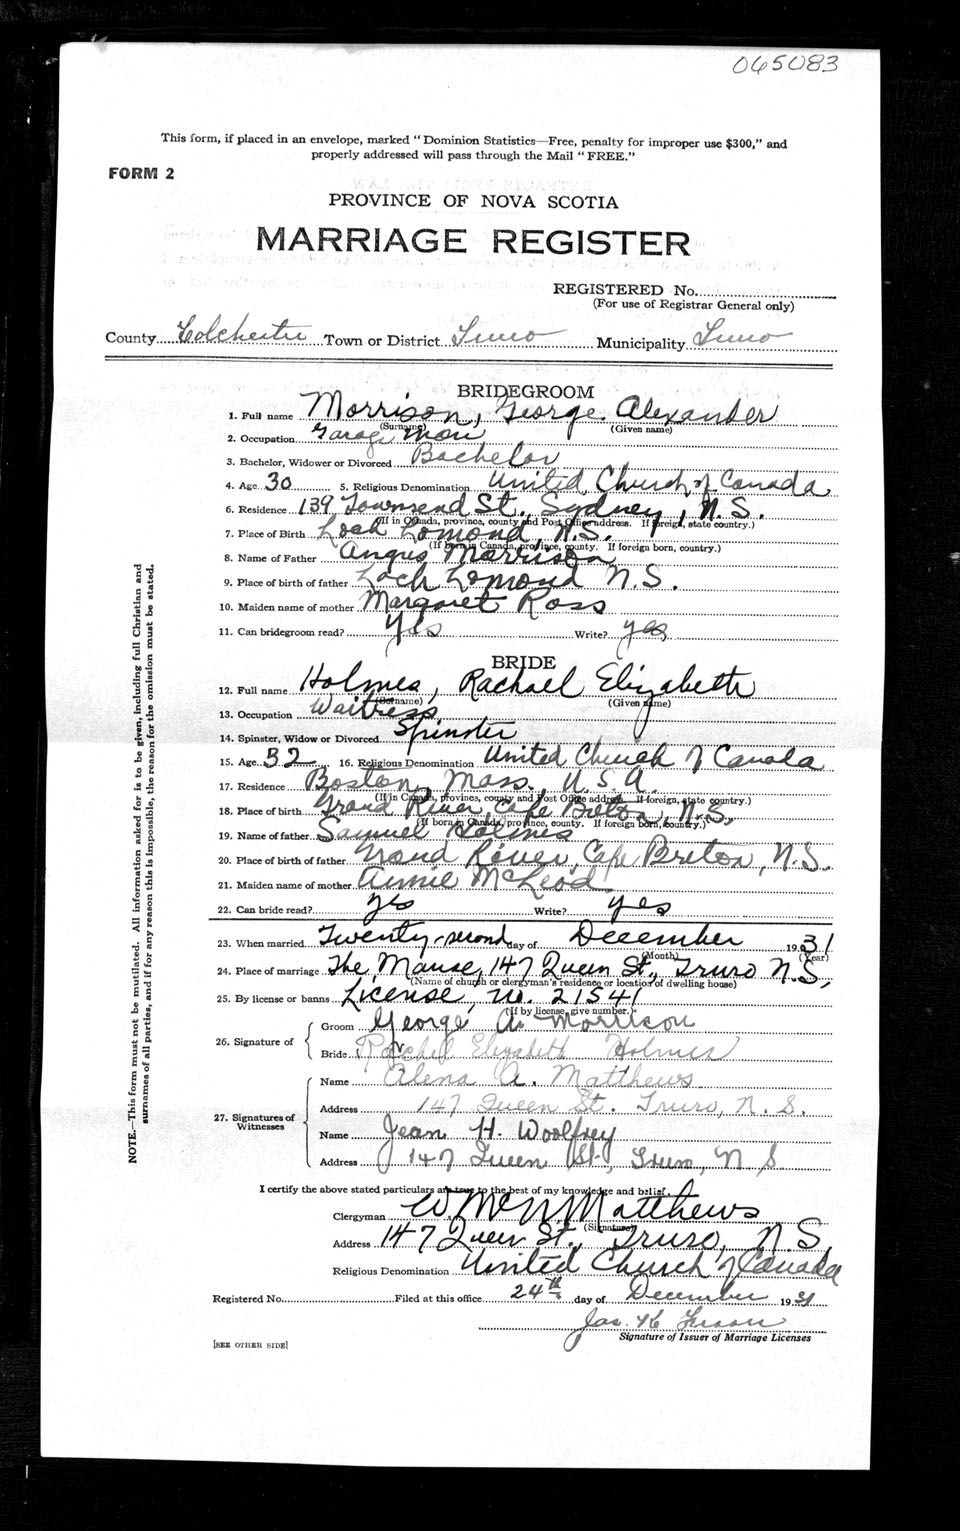 065083
This form, if placed in an envelope, marked "Dominion Statistics—Free, penalty for improper use $300," and
properly addressed will pass through the Mail "FREE."
FORM 2
PROVINCE OF NOVA SCOTIA
MARRIAGE REGISTER
REGISTERED No.
(For use of Registrar General only)
County Colchester Town or District Truro Municipality Truro
BRIDEGROOM
1. Full name Morrison, George Alexander
(Surname) (Given name)
2. Occupation Garage Man
3. Bachelor, Widower or Divorced Bachelor
4. Age 30 5. Religious Denomination United Church of Canada
6. Residence 139 Townsend St., Sydney, N.S.
(If in Canada, province, county and Post Office address. If foreign, state country.)
7. Place of Birth Loch Lomond, N.S.
(If born in Canada, province, county. If foreign born, country.)
8. Name of Father Angus Morrison
9. Place of birth of father Loch Lomond N.S.
10. Maiden name of mother Margaret Ross
11. Can bridegroom read? Yes Write? yes
BRIDE
12. Full name Holmes, Rachael Elizabeth
(Surname) (Given name)
13. Occupation Waitress
14. Spinster, Widow or Divorced Spinster
15. Age 32 16. Religious Denomination United Church of Canada
17. Residence Boston, Mass., U.S.A.
(If in Canada, province, county and Post Office address. If foreign, state country.)
18. Place of birth Grand River, Cape Breton, N.S.
(If born in Canada, province, county. If foreign born, country.)
19. Name of father Samuel Holmes
20. Place of birth of father Grand River, Cape Breton, N.S.
21. Maiden name of mother Annie McLeod
22. Can bride read? yes Write? yes
23. When married Twenty-second day of December 1931
(Month) (Year)
24. Place of marriage The Manse, 147 Queen St., Truro N.S.
(Name of church or clergyman's residence or location of dwelling house)
25. By license or banns License, no. 21541
(If by license, give number.)
26. Signature of
Groom George A. Morrison
Bride Rachel Elizabeth Holmes
27. Signatures of Witnesses
Name Alena A. Matthews
Address 147 Queen St. Truro, N.S.
Name Jean H. Woolfrey
Address 147 Queen St., Truro, N S
I certify the above stated particulars are true to the best of my knowledge and belief.
Clergyman Matthews
(Signature)
Address 147 Queen St., Truro, N.S
Religious Denomination United Church of Canada
Registered No. Filed at this office 24th day of December 1931
Jas.
Signature of Issuer of Marriage Licenses
[SEE OTHER SIDE]
NOTE.—This form must not be mutilated. All information asked for is to be given, including full Christian and
surnames of all parties, and if for any reason this is impossible, the reason for the omission must be stated.